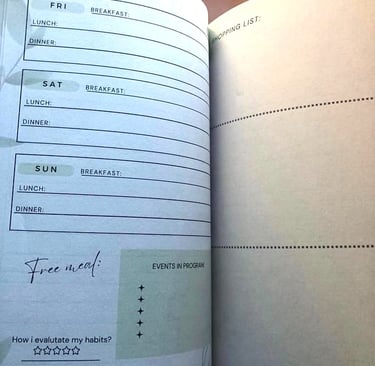 FRI
BREAKFAST:
LUNCH:
DINNER:
SAT
BREAKFAST:
LUNCH:
DINNER:
SUN
BREAKFAST:
LUNCH:
DINNER:
Free meal:
EVENTS IN PROGRAM
How i evalutate my habits?
SHOPPING LIST: